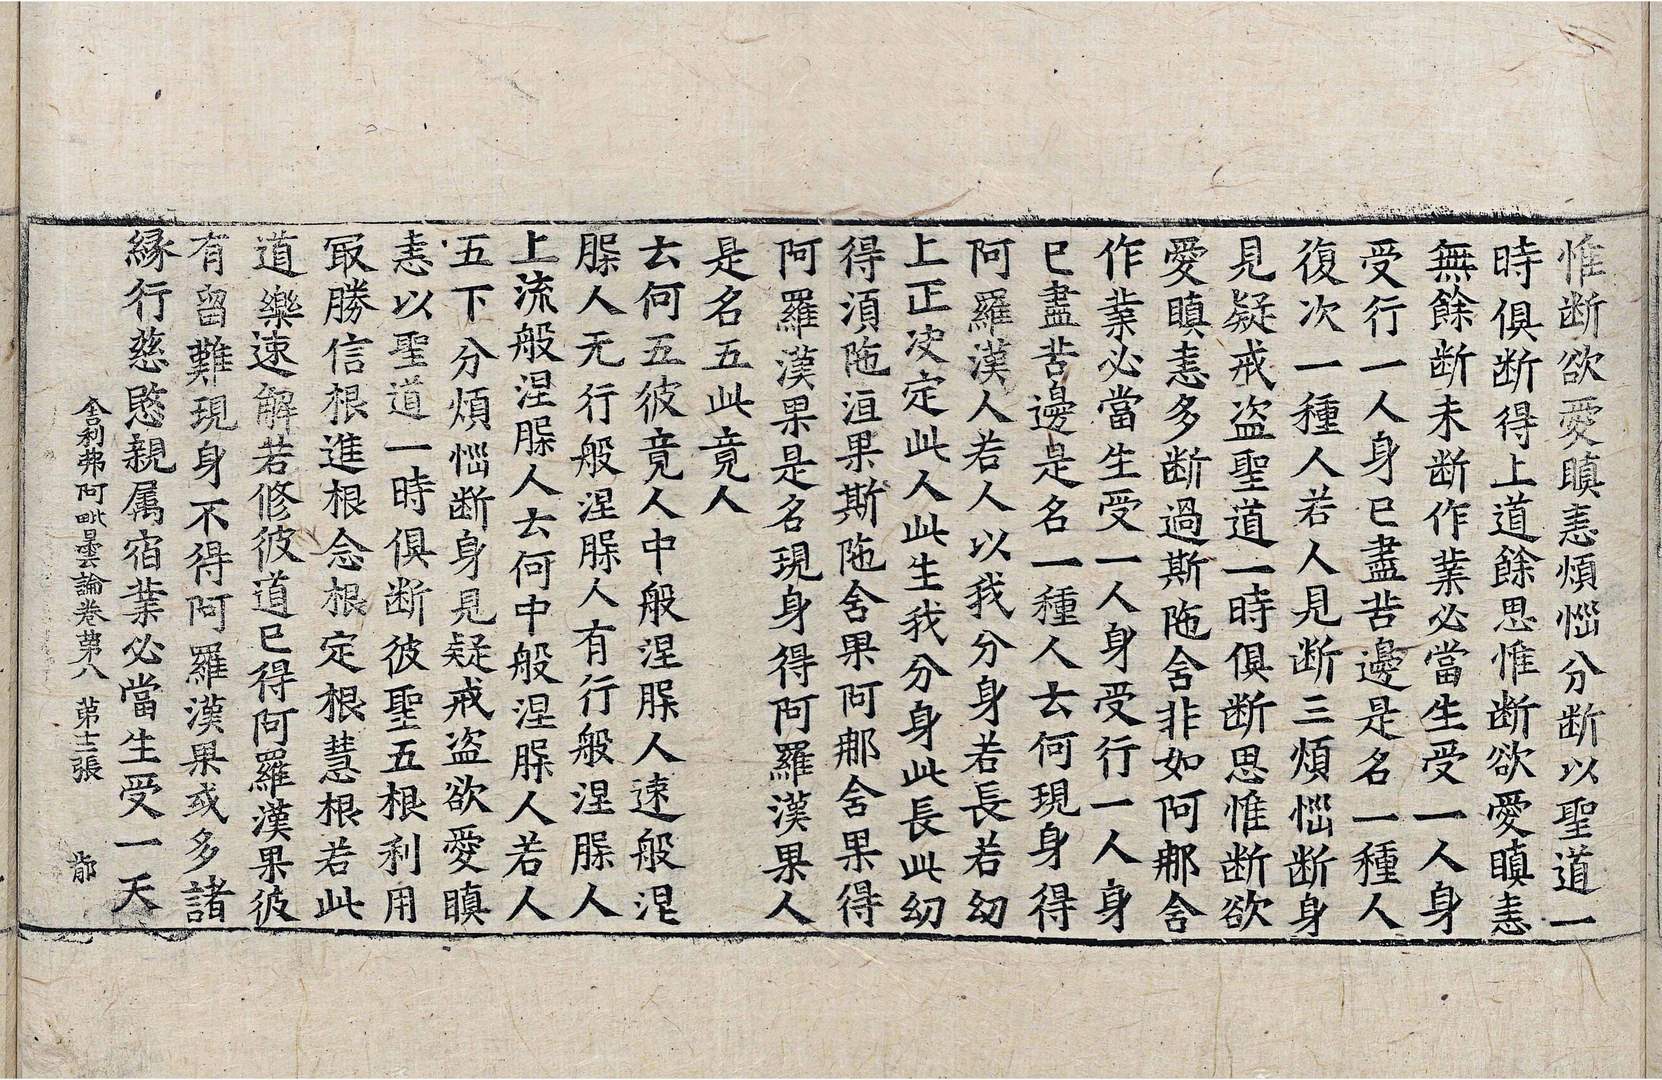 惟断欲愛瞋恚煩惱分断以聖道一
時俱断得上道餘思惟断欲愛瞋恚
無餘断未断作業必當生受一人身
受行一人身已盡苦邊是名一種人
復次一種人若人見断三煩惱断身
見疑戒盗聖道一時俱断思惟断欲
愛瞋恚多断過斯陁含非如阿𨙻含
作業必當生受一人身受行一人身
已盡苦邊是名一種人云何現身得
阿羅漢人若人以我分身若長若幼
上正决定此人此生我分身此長此幼
得湏陁洹果斯陁含果阿𨙻含果得
阿羅漢果是名現身得阿羅漢果人
是名五此竟人
云何五彼竟人中般涅槃人速般涅
槃人无行般涅槃人有行般涅槃人
上流般涅槃人云何中般涅槃人若人
五下分煩惱断身見疑戒盗欲愛瞋
恚以聖道一時俱断彼聖五根利用
㝡勝信根進根念根定根慧根若此
道樂速解若修彼道已得阿羅漢果彼
有留難現身不得阿羅漢果或多諸
緣行慈愍親属宿業必當生受一天
舍利弗阿毗曇論卷第八　第十二張